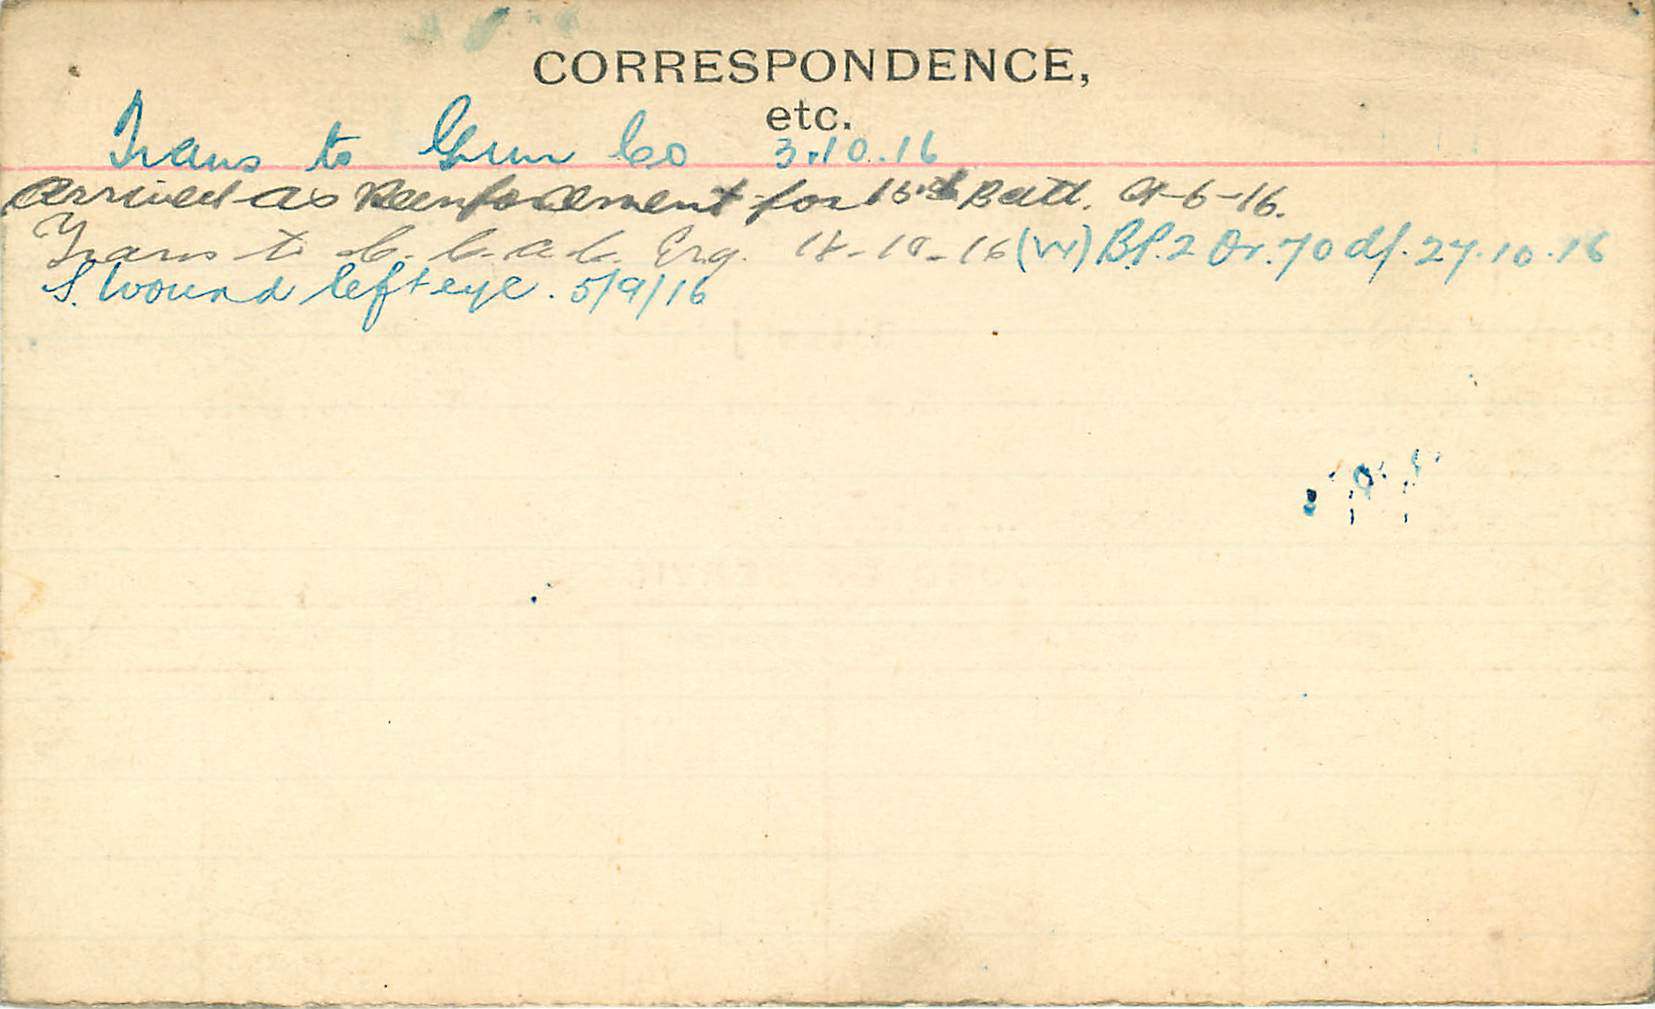 CORRESPONDENCE,
etc.
Trans to Gun Co 3.10.16
Arrived as Reenforcement for 15th Batt. 9-6-16.
Trans to C.C.A.C. Eng. 18-10-16 (W) B.P.2 Or. 70 df. 27.10.16
S. Wound left eye. 5/9/16